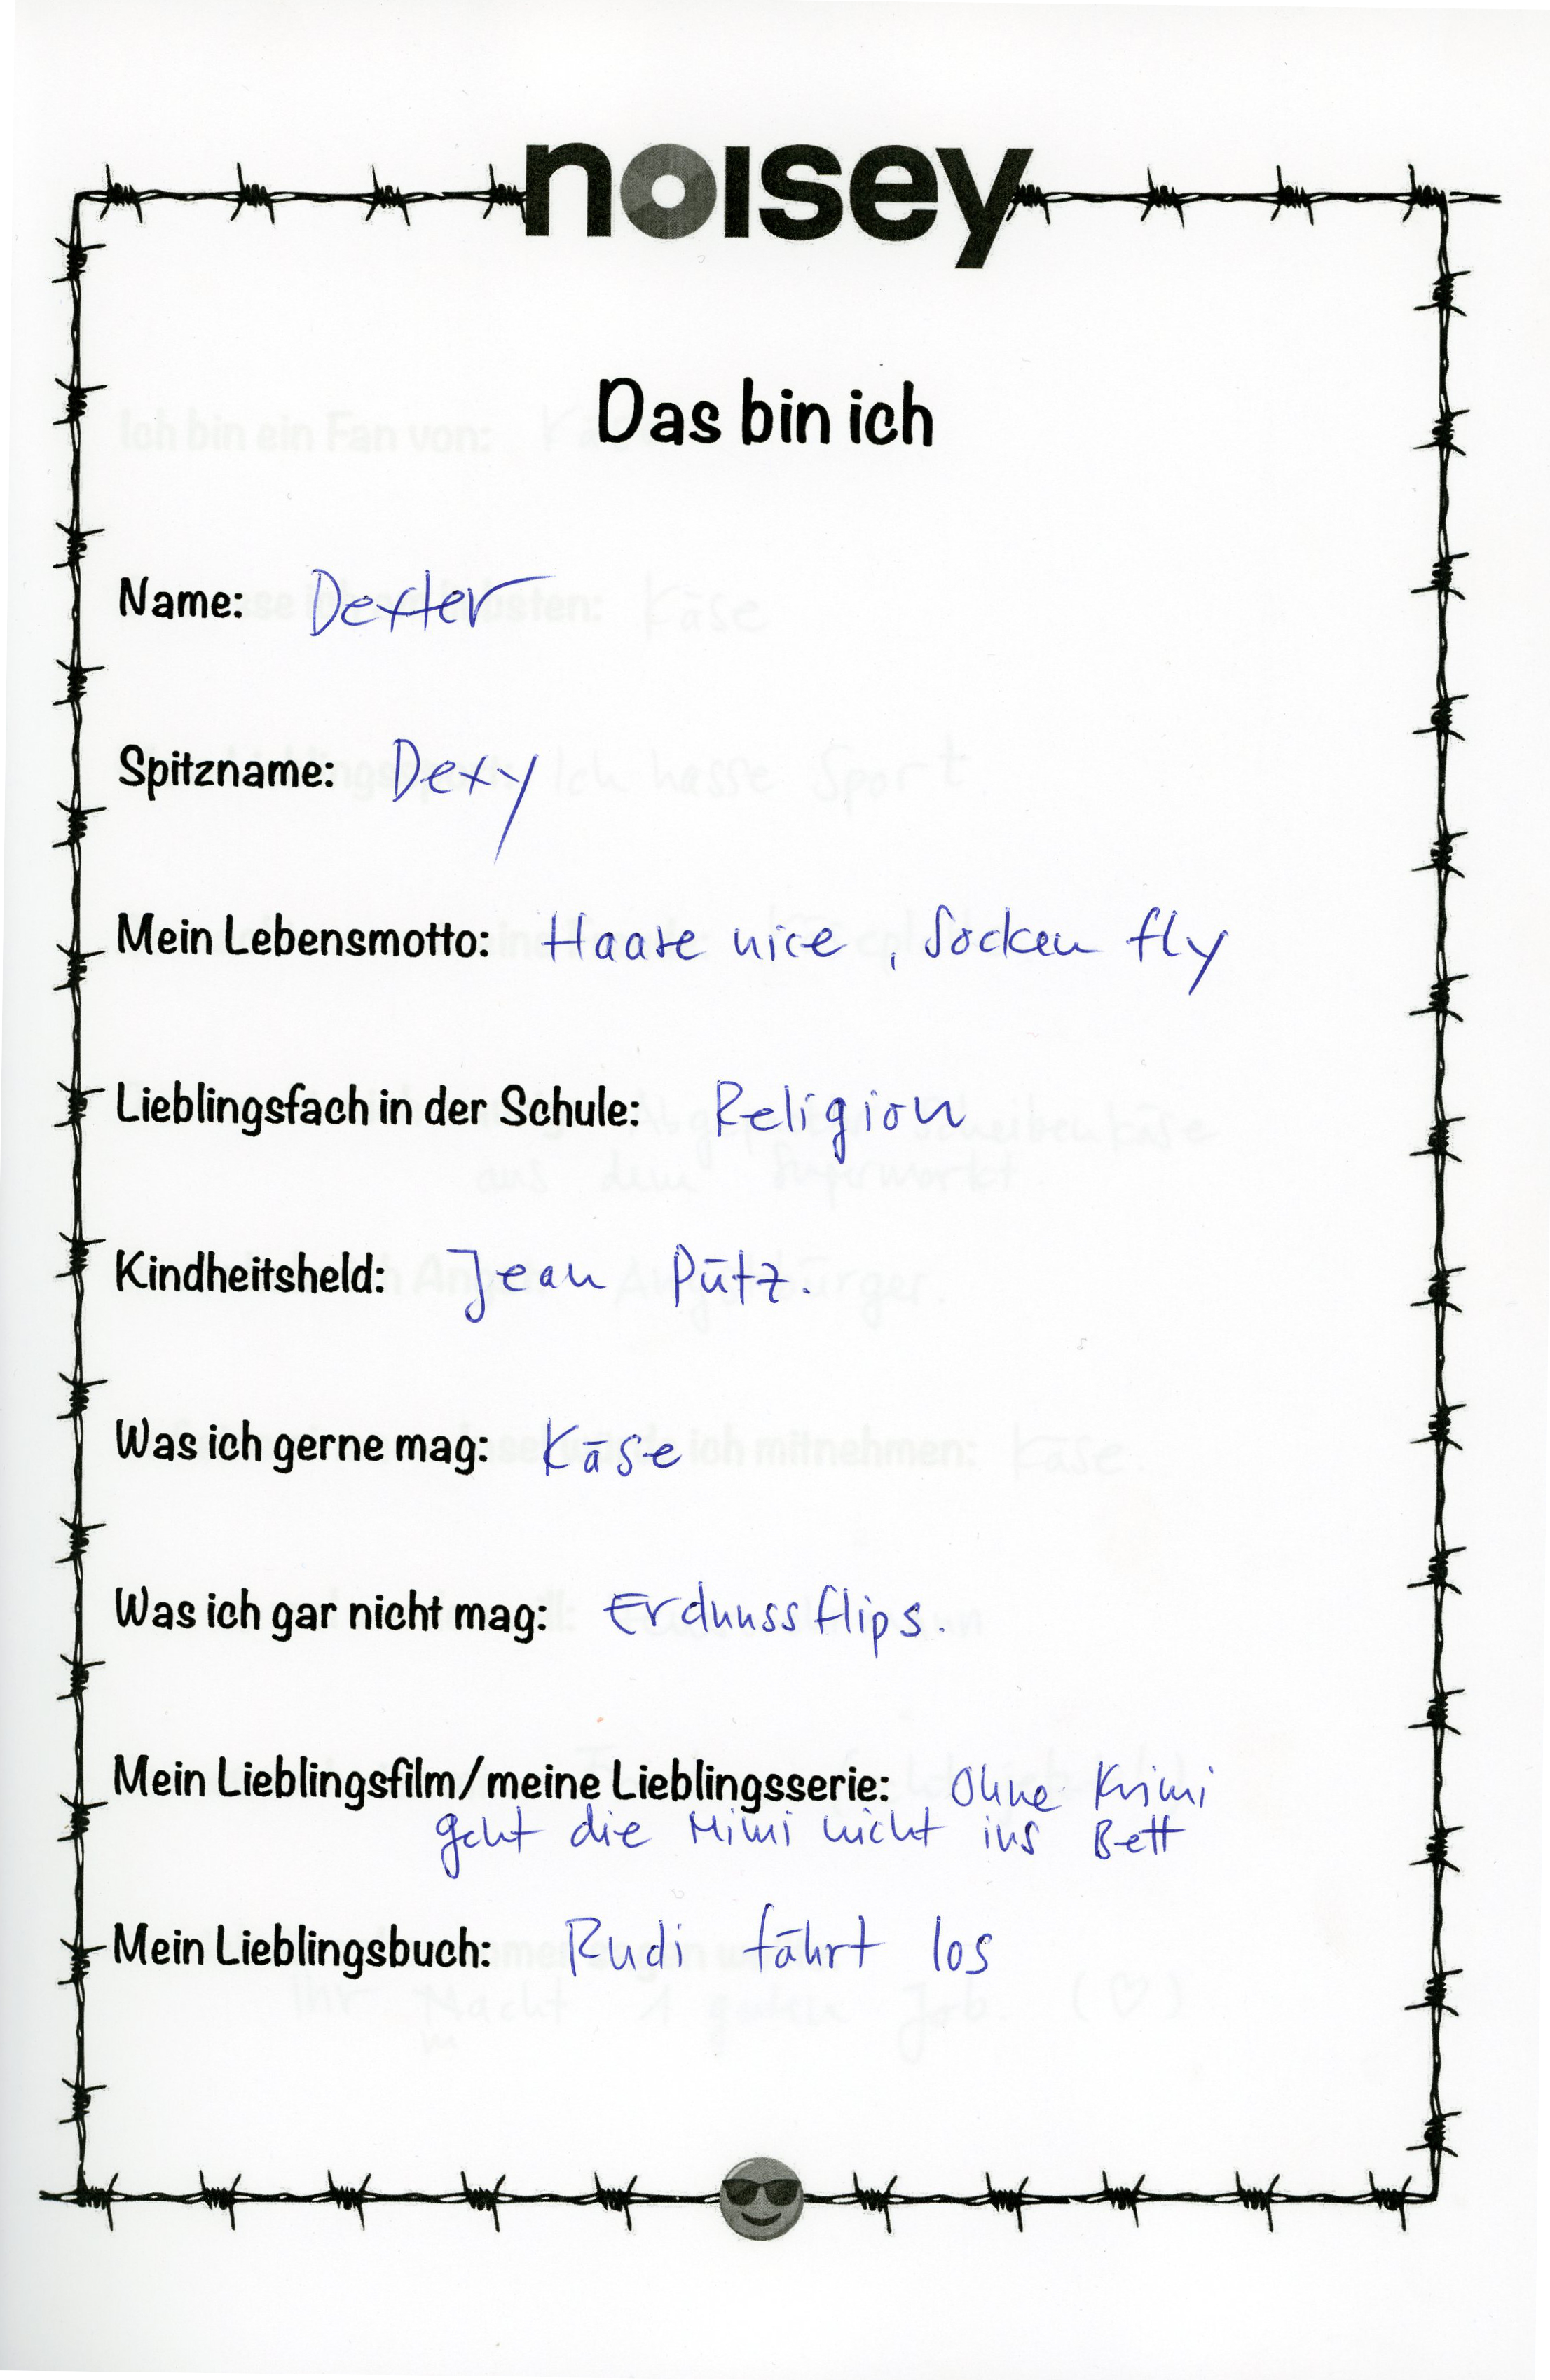 noisey
Das bin ich
Name: Dexter
Spitzname: Dexy
Mein Lebensmotto: Haare nice, Socken fly
Lieblingsfach in der Schule: Religion
Kindheitsheld: Jean Pütz.
Was ich gerne mag: Käse
Was ich gar nicht mag: Erdnussflips.
Mein Lieblingsfilm/meine Lieblingsserie: Ohne Krimi
geht die Mimi nicht ins Bett
Mein Lieblingsbuch: Rudi fährt los